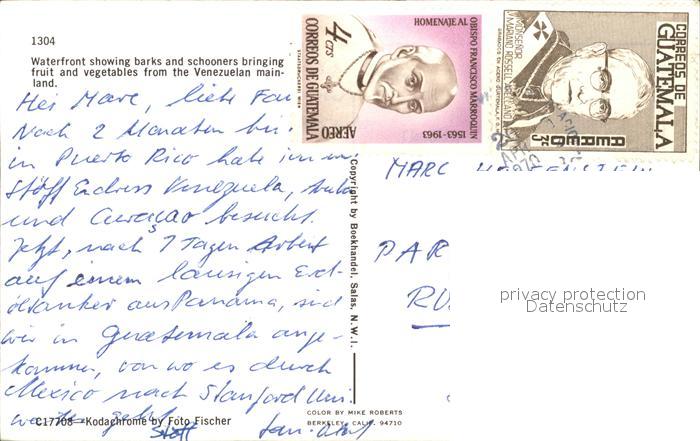 1304
Waterfront showing barks and schooners bringing
fruit and vegetables from the Venezuelan main-
land.
4 cts
HOMENAJE AL
OBISPO FRANCISCO MARROQUIN
1563-1963
CORREOS DE GUATEMALA
AEREO
CORREOS DE
GUATEMALA
AEREO
MONSEÑOR
MARIANO ROSSELL ARELLANO
Hei Marc, liebe Fam
Nach 2 Monaten
in Puerto Rico habe
Stoff Endress Venezuela,
und Curaçao besucht.
Jetzt, nach 7 Tagen Arbeit
auf einem lausigen
öltanker aus Panama, sind
wir in Guatemala ange-
kommen, von wo es durch
Mexico nach Stanford Uni
geht.
Copyright by Boekhandel, Salas, N.W.I.
MARC
PAR
RU
privacy protection
Datenschutz
C17708—Kodachrome by Foto Fischer
COLOR BY MIKE ROBERTS
BERKELEY, CALIF. 94710